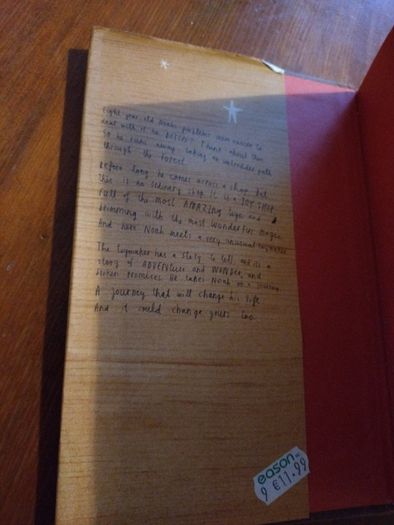 Eight-year-old Noah's problems seem easier to
deal with if he DOESN'T think about them.
So he runs away, taking an untrodden path
through the forest.
Before long he comes across a shop. But
this is no ordinary shop. It is a TOYSHOP
full of the most AMAZING toys and
brimming with the most WONDERFUL magic.
And here Noah meets a very unusual toymaker.
The toymaker has a story to tell, and it's a
story of ADVENTURE and WONDER and
broken promises. He takes Noah on a journey.
A journey that will change his life.
And it could change yours too.
eason
9 €11.99